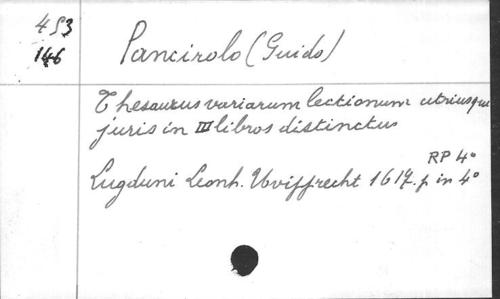 453
146
Pancirolo (Guido)
Thesaurus variarum lectionum utriusque
juris in III libros distinctus
RP 4°
Lugduni Leonh. 1617. p in 4°